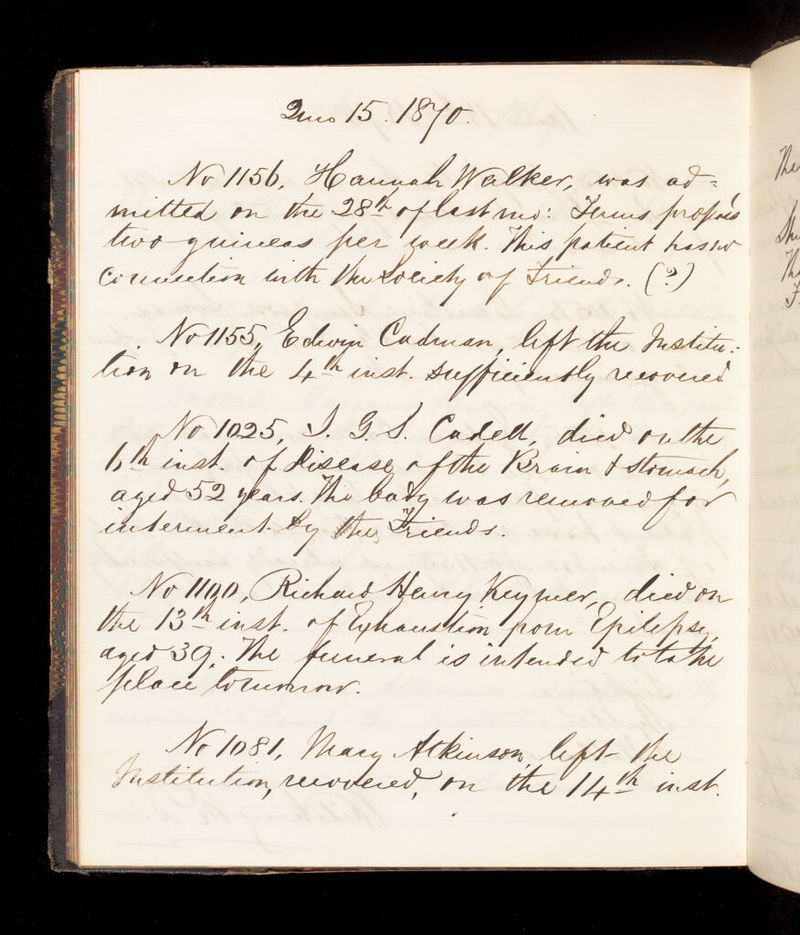 2mo 15. 1870.
No 1156, Hannah Walker, was ad=
mitted on the 28th of last mo: Terms propos'd
two guineas per week. This patient has no
connection with the Society of Friends. (?)
No 1155, Edwin Cadman, left the Institu:
tion on the 4th inst. sufficiently recovered
No 1025, I. G. S. Cadell, died on the
6th inst. of disease of the Brain & stomach,
aged 52 years. The body was removed for
interment by the Friends.
No 1100, Richard Henry Keymer, died on
the 13th inst. of Exhaustion from Epilepsy,
aged 39. The funeral is intended to take
place tomorrow.
No 1081, Mary Atkinson, left the
Institution, recovered, on the 14th inst.
The
The
F